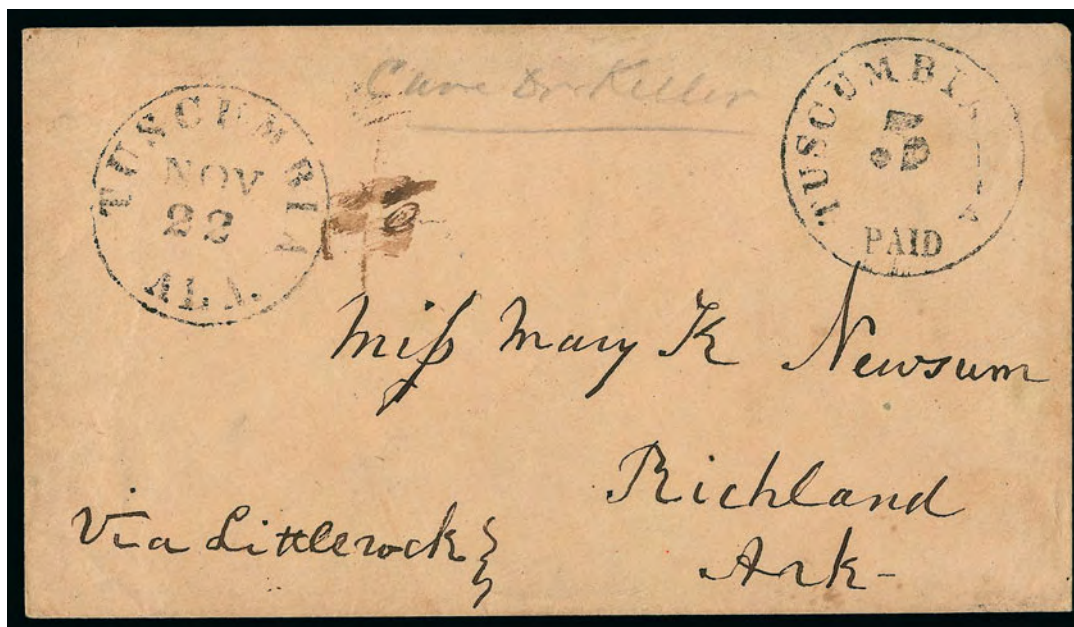 Care Dr. Keller
TUSCUMBIA
NOV
22
ALA.
TUSCUMBIA
5
PAID
Miss Mary K Newsum
Richland
Via Littlerock
Ark-